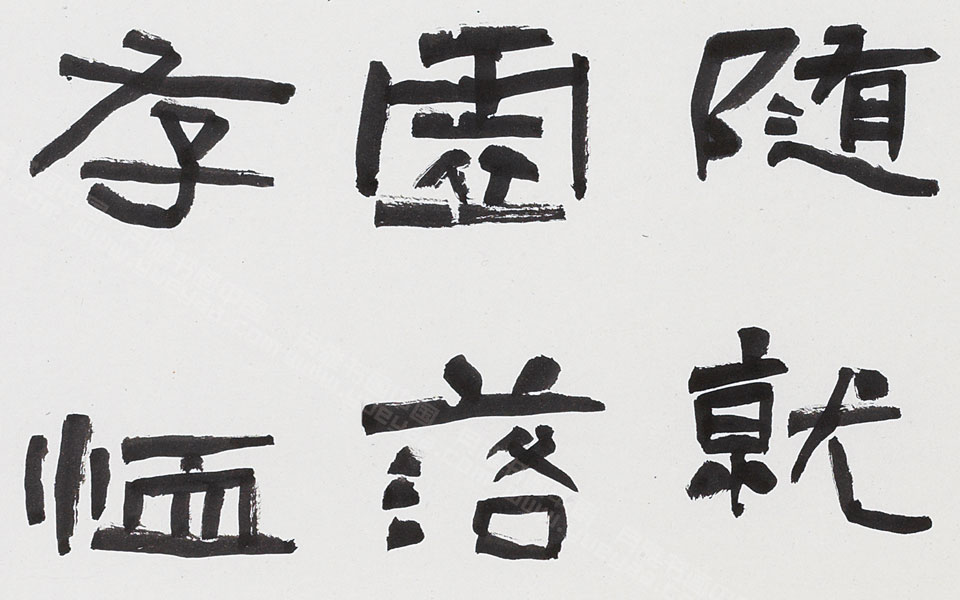 随就
虛落
存恤